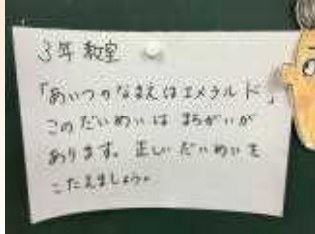 3年教室
「あいつのなまえはエメラルド」
このだいめいは まちがいが
あります。正しいだいめいを
こたえましょう。